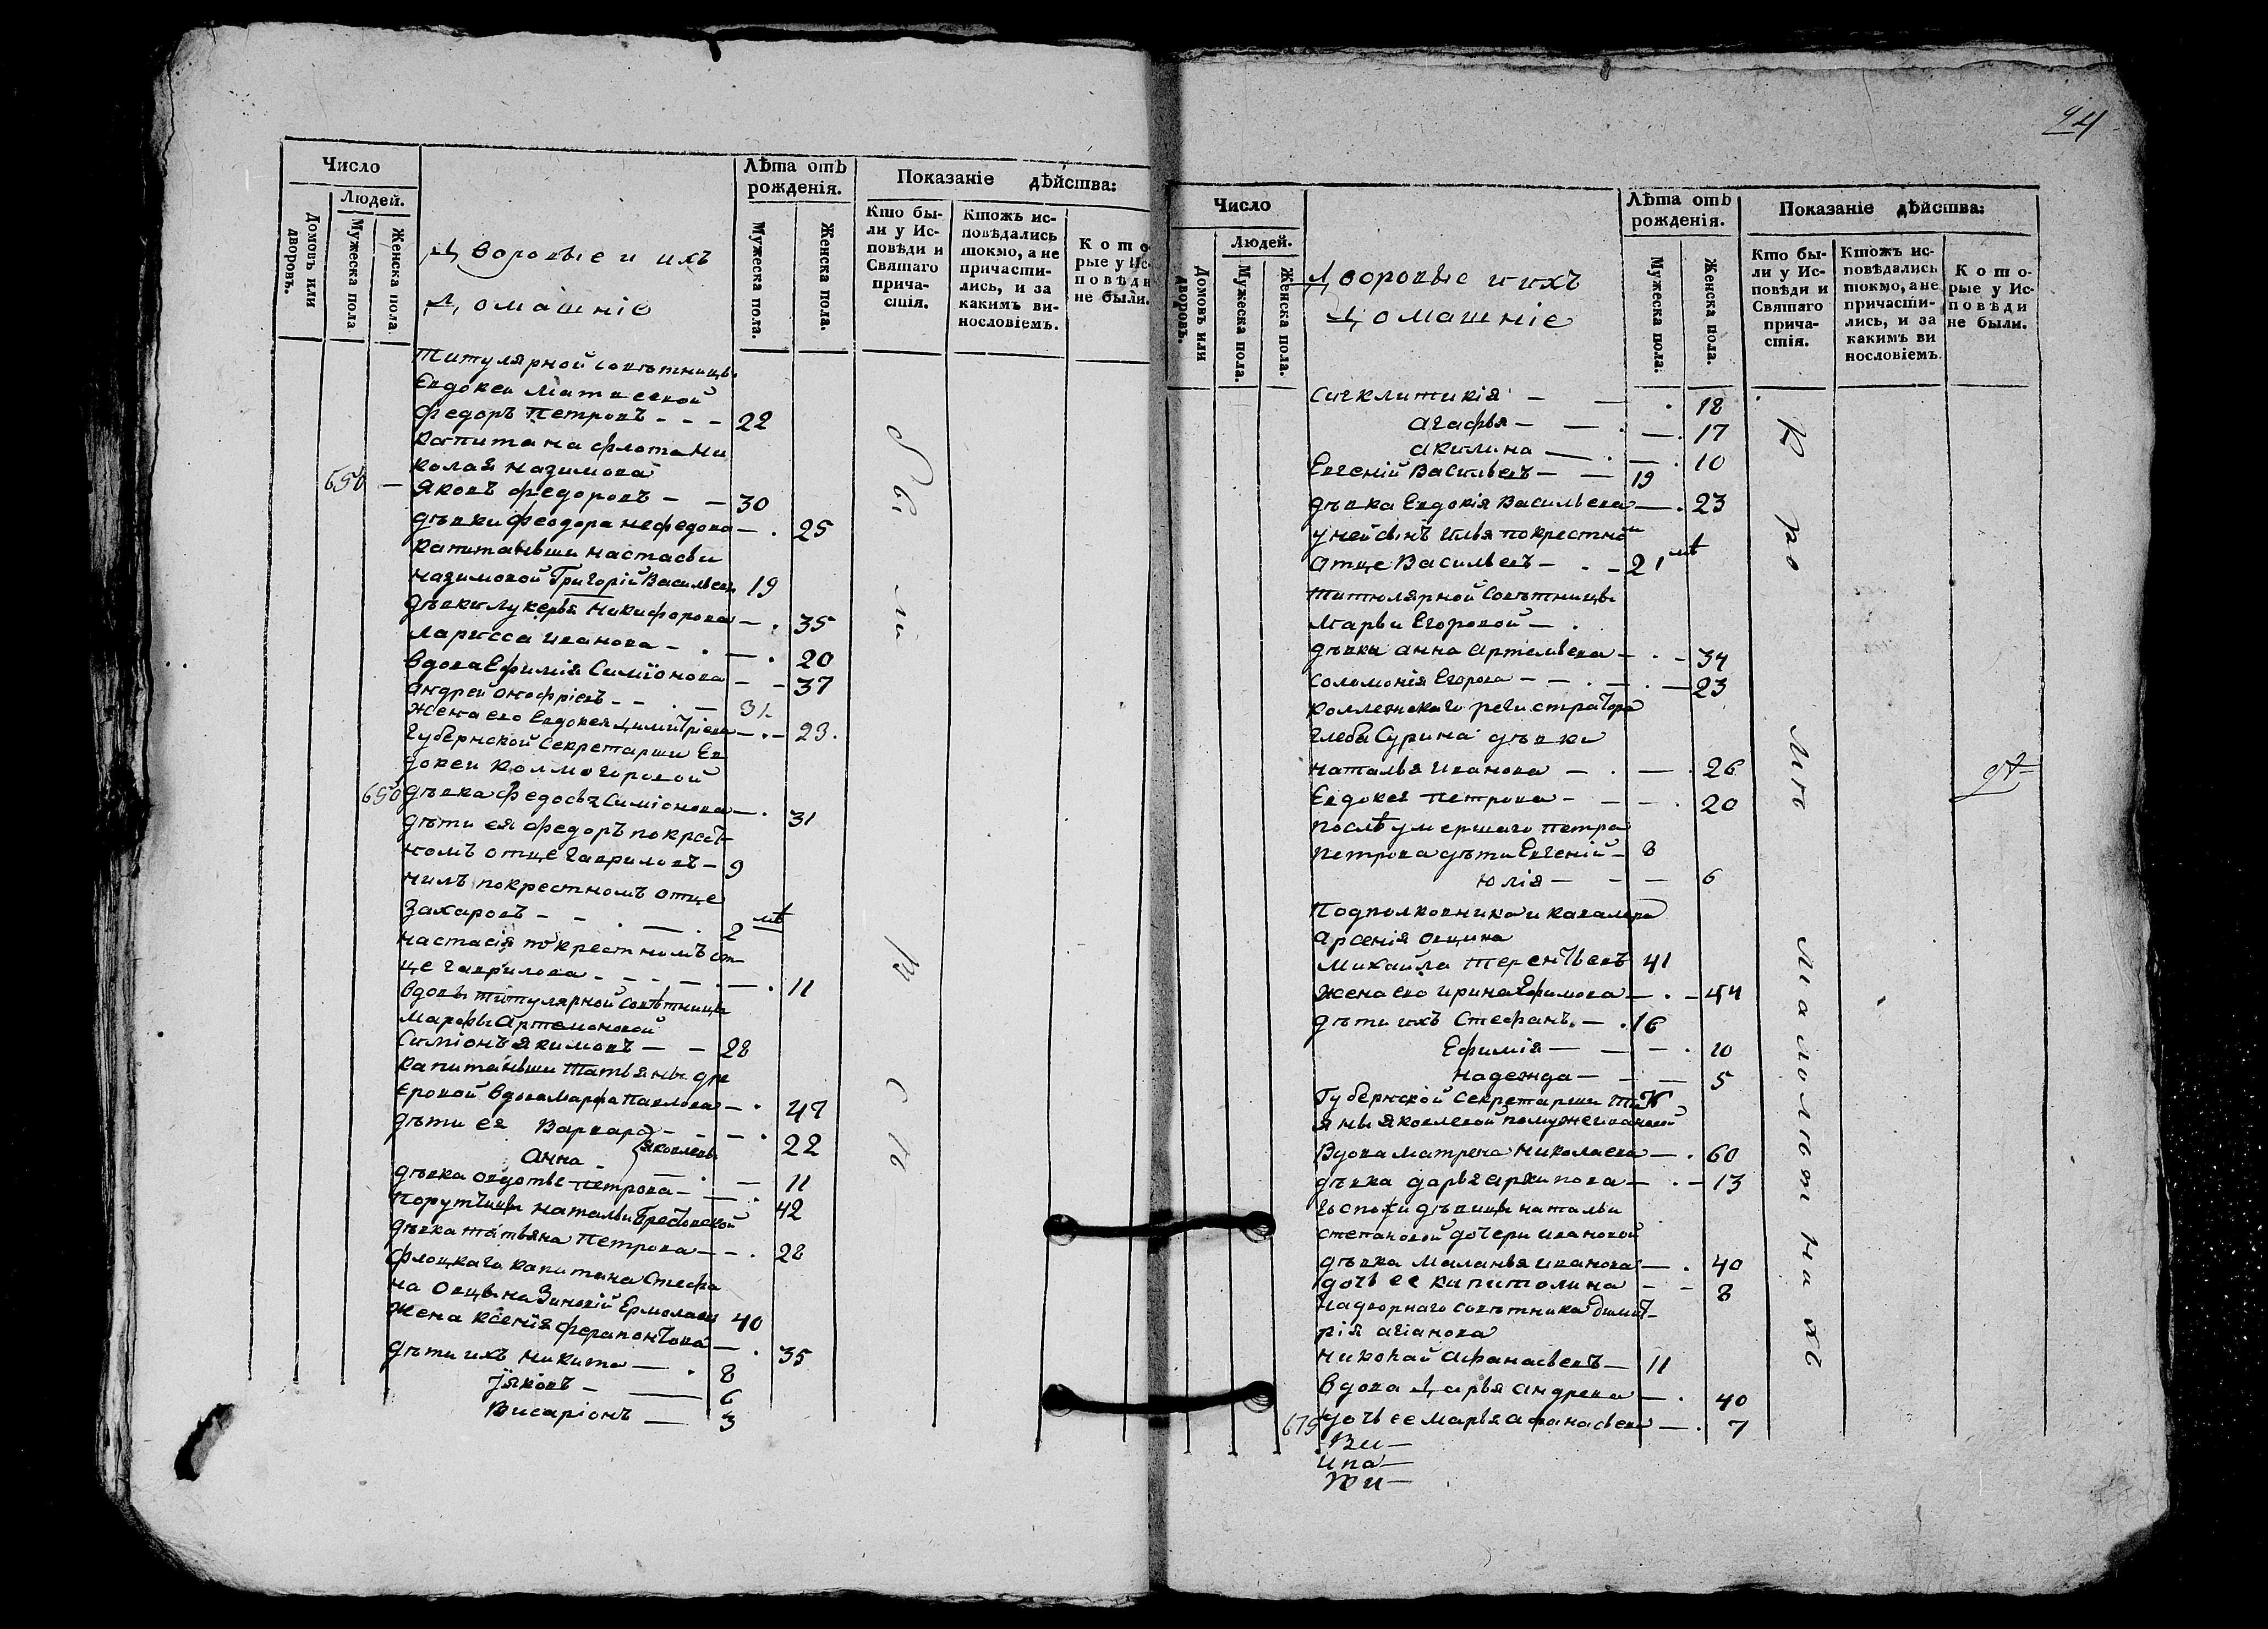 Число
Людей.
Домовъ или дворовъ.
Мужеска пола
Женска пола.
Дворовые и ихъ
Домашніе
Лѣта отъ рожденія.
Мужеска пола.
Женска пола.
Показаніе дѣйства:
Кто бы-
ли у Ис-
повѣди и
Святаго
прича-
стія.
Ктожъ ис-
повѣдались
токмо, а не
причасти-
лись, и за
какимъ ви-
нословіемъ.
К о т о
рые у Ис-
п о в ѣ д и
не были.
Титулярной совѣтницы
Евдокеи Матвеевой
Федоръ Петровъ - - - 22
Капитана флота Ни
колая Назимова
650 — Яковъ Федоровъ - — 30
дѣвки Феодора Нефедова — . 25
Капитанши Настасьи
Назимовой Григорій Васильевъ 19
дѣвки Лукерья Никифорова — . 35
Ларисса Иванова - . — . 20
вдова Ефимія Симіонова — - 37
Андрей Онофріевъ - - . — 31.
жена его Евдокея Димитріева — . - 23.
Губернской Секретарши Ев
докеи Колмогоровой
650 дѣвка Федосья Симіонова — . 31
дѣти ея Федоръ по крест-
номъ отце Гавриловъ - 9
Нилъ по крестномъ отце
Захаровъ - - . — . 2 мѣ
Настасія по крестномъ от-
це Гаврилова - - - — . — . 11
вдовы титулярной совѣтницы
Марфы Артемоновой
Симіонъ Якимовъ — - 28
Капитанши Татьяны
еровой вдова Марфа Павлова — . 47
дѣти ея Варвара - - — . 22
Анна - Яковлевы . — 11
дѣвка Авдотья Петрова - — . 42
Порутчицы Натальи
дѣвка Татьяна Петрова — - . 28
Флоцкаго капитана Стефа
на Овцына Зиновій Ермолаевъ 40
Жена Ксенія Ферапонтова — . 35
дѣти ихъ Никита — . 8
Яковъ - — 6
Висаріонъ — 3
Р о с п и с ь
24
Число
Людей.
Домовъ или дворовъ.
Мужеска пола.
Женска пола.
Дворовые и ихъ
Домашніе
Лѣта отъ рожденія.
Мужеска пола.
Женска пола.
Показаніе дѣйства:
Кто бы-
ли у Ис-
повѣди и
Святаго
прича-
стія.
Ктожъ ис-
повѣдались
токмо, а не
причасти-
лись, и за
какимъ ви
нословіемъ.
К о т о-
рые у Ис-
п о в ѣ д и
не были.
Сигклитикія - — . 18
Агафья - — . — . 17
Акилина — . — . 10
Евгеній Васильевъ - — 19
дѣвка Евдокія Васильева — . 23
у ней сынъ Илья по крестном
отце Васильевъ - . - 2 мѣ
титюлярной Совѣтницы
Марьи Егоровой — .
дѣвки Анна Артемьева — . - 34
Соломонія Егорова - — . — . — 23
Коллежскаго регистратора
Глеба Сурина дѣвки
Наталья Иванова — . — . 26
Евдокея Петрова - — — . 20
после умершаго Петра
Петрова дѣти Евгеній - 8
Юлія — - — 6
Подполковника и кавалера
Арсенія Овцина
Михайла Терентьевъ 41
Жена его Ирина Ефимова — . - 44
дѣти ихъ Стефанъ. — . 16
Ефимія — — - . 10
Надежда — - — 5
Губернской Секретарши Тат
яны Яковлевой по муже Ивановой
Вдова Матрена Николаева — . 60
дѣвка Дарья Архипова — . - 13
Госпожи дѣвицы Натальи
Степановой дочери Ивановой
дѣвка Маланья Иванова — . 40
дочь ее Капитолина - - 8
Надворнаго совѣтника Димит-
рія
Николай Афанасьевъ — 11
вдова Дарья Андреева — . 40
675 дочь ее Марья Афанасьева — . 7
Ви —
Ипа —
Жи —
К р о м ѣ м а л о л ѣ т н и х ъ